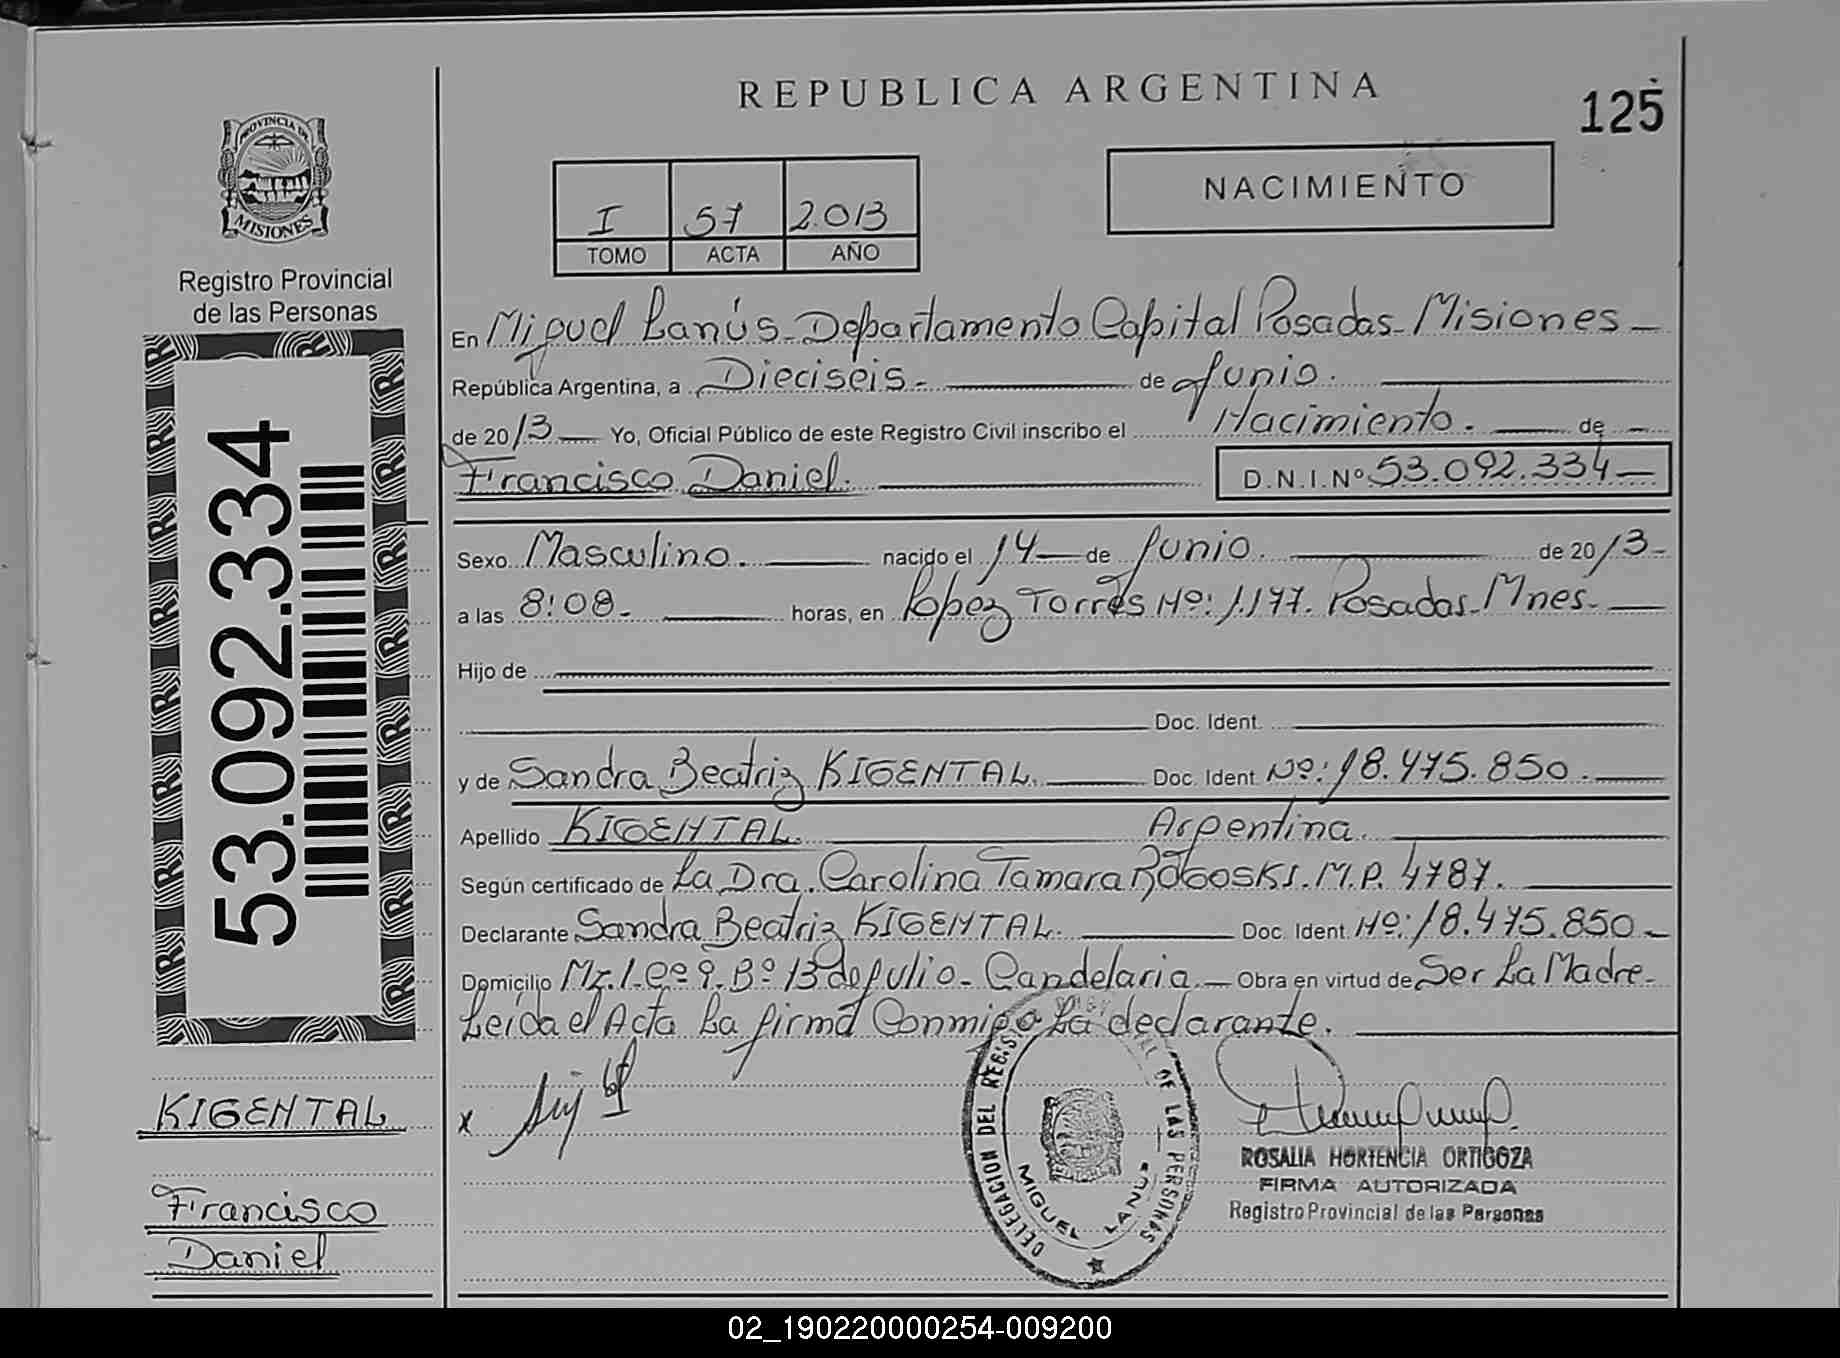 REPUBLICA ARGENTINA
125
PROVINCIA DE
MISIONES
Registro Provincial
de las Personas
53.092.334
I 57 2.013
TOMO ACTA AÑO
NACIMIENTO
En Miguel Lanús - Departamento Capital Posadas - Misiones -
República Argentina, a Dieciseis. - de Junio.
de 2013 - Yo, Oficial Público de este Registro Civil inscribo el Nacimiento. - de -
Francisco Daniel. D.N.I.Nº 53.092.334 -
Sexo Masculino. - nacido el 14 - de Junio. - de 2013 -
a las 8:08 - horas, en Lopez Torres Nº: 1.177. Posadas - Mnes. -
Hijo de
Doc. Ident.
y de Sandra Beatriz KIGENTAL. - Doc. Ident. Nº: 18.475.850. -
Apellido KIGENTAL. Argentina.
Según certificado de La Dra. Carolina Tamara ROGOSKI. M.P. 4787.
Declarante Sandra Beatriz KIGENTAL. - Doc. Ident. Nº: 18.475.850 -
Domicilio Mz. 1. Cº 9. Bº 13 de Julio - Candelaria. - Obra en virtud de Ser La Madre -
Leída el Acta La firma Conmigo La declarante.
x
DELEGACION DEL REGIS DE LAS PERSONAS
MIGUEL LANUS
ROSALIA HORTENCIA ORTIGOZA
FIRMA AUTORIZADA
Registro Provincial de las Personas
KIGENTAL
Francisco
Daniel
02_190220000254-009200